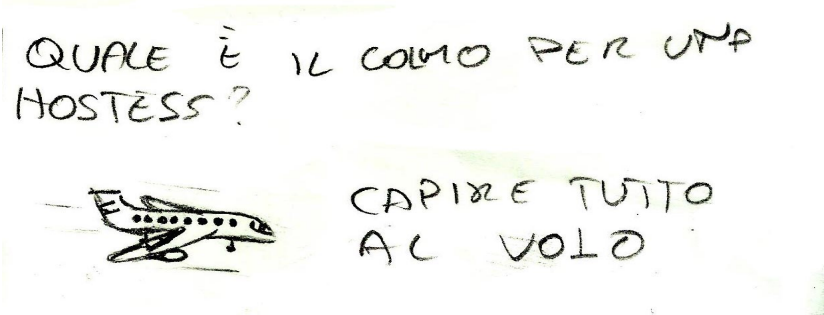 QUALE È IL COLMO PER UNA
HOSTESS?
CAPIRE TUTTO
AL VOLO